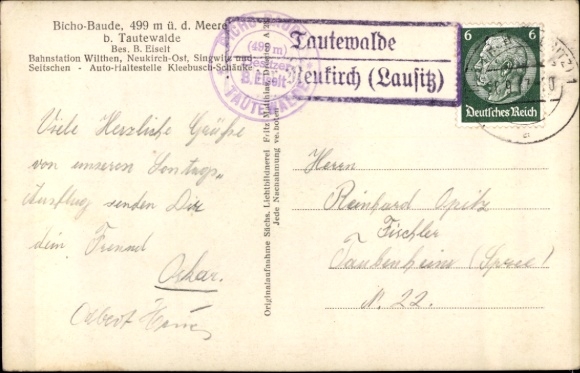 Bicho-Baude, 499 m ü. d. Meere
b. Tautewalde
Bes. B. Eiselt
Bahnstation Wilthen, Neukirch-Ost, Singwitz und
Seitschen - Auto-Haltestelle Kleebusch-Schänke
BICHO-BAUDE
(499 m)
Besitzer
B. Eiselt
TAUTEWALDE
Tautewalde
Neukirch (Lausitz)
6 6
Deutsches Reich
Viele Herzliche Grüße
von unseren Sontags
Ausflug senden Dir
dein Freund
Oskar.
Originalaufnahme Sächs. Lichtbildnerei Fritz
Jede Nachahmung verboten
Herrn
Reinhard Opitz
Tischler
Taubenheim (Spree)
N. 22.